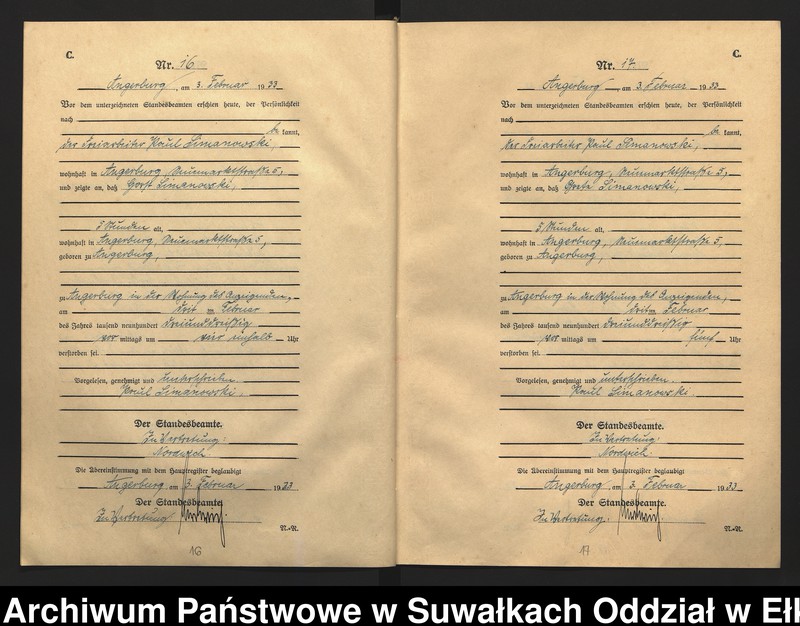 C.
Nr. 16
Angerburg, am 3. Februar 1933
Vor dem unterzeichneten Standesbeamten erschien heute, der Persönlichkeit
nach
be kannt,
der Freiarbeiter Paul Limanowski,
wohnhaft in Angerburg, Neuemarktstraße 5,
und zeigte an, daß Horst Limanowski,
5 Stunden alt,
wohnhaft in Angerburg, Neuemarktstraße 5,
geboren zu Angerburg,
zu Angerburg in der Wohnung des Anzeigenden,
am drit en Februar
des Jahres tausend neunhundert dreiunddreißig
vor mittags um vier einhalb Uhr
verstorben sei.
Vorgelesen, genehmigt und unterschrieben.
Paul Limanowski.
Der Standesbeamte.
In Vertretung:
Die Übereinstimmung mit dem Hauptregister beglaubigt
Angerburg, am 3. Februar 1933
Der Standesbeamte.
In Vertretung:
N.-R.
16
C.
Nr. 17.
Angerburg, am 3. Februar 1933
Vor dem unterzeichneten Standesbeamten erschien heute, der Persönlichkeit
nach
be kannt,
der Freiarbeiter Paul Limanowski,
wohnhaft in Angerburg, Neuemarktstraße 5,
und zeigte an, daß Grete Limanowski,
5 Stunden alt,
wohnhaft in Angerburg, Neuemarktstraße 5,
geboren zu Angerburg,
zu Angerburg in der Wohnung des Anzeigenden,
am dritten Februar
des Jahres tausend neunhundert dreiunddreißig
vor mittags um fünf Uhr
verstorben sei.
Vorgelesen, genehmigt und unterschrieben.
Paul Limanowski.
Der Standesbeamte.
In Vertretung:
Die Übereinstimmung mit dem Hauptregister beglaubigt
Angerburg, am 3. Februar 1933
Der Standesbeamte.
In Vertretung:
N.-R.
17
Archiwum Państwowe w Suwałkach Oddział w Ełk